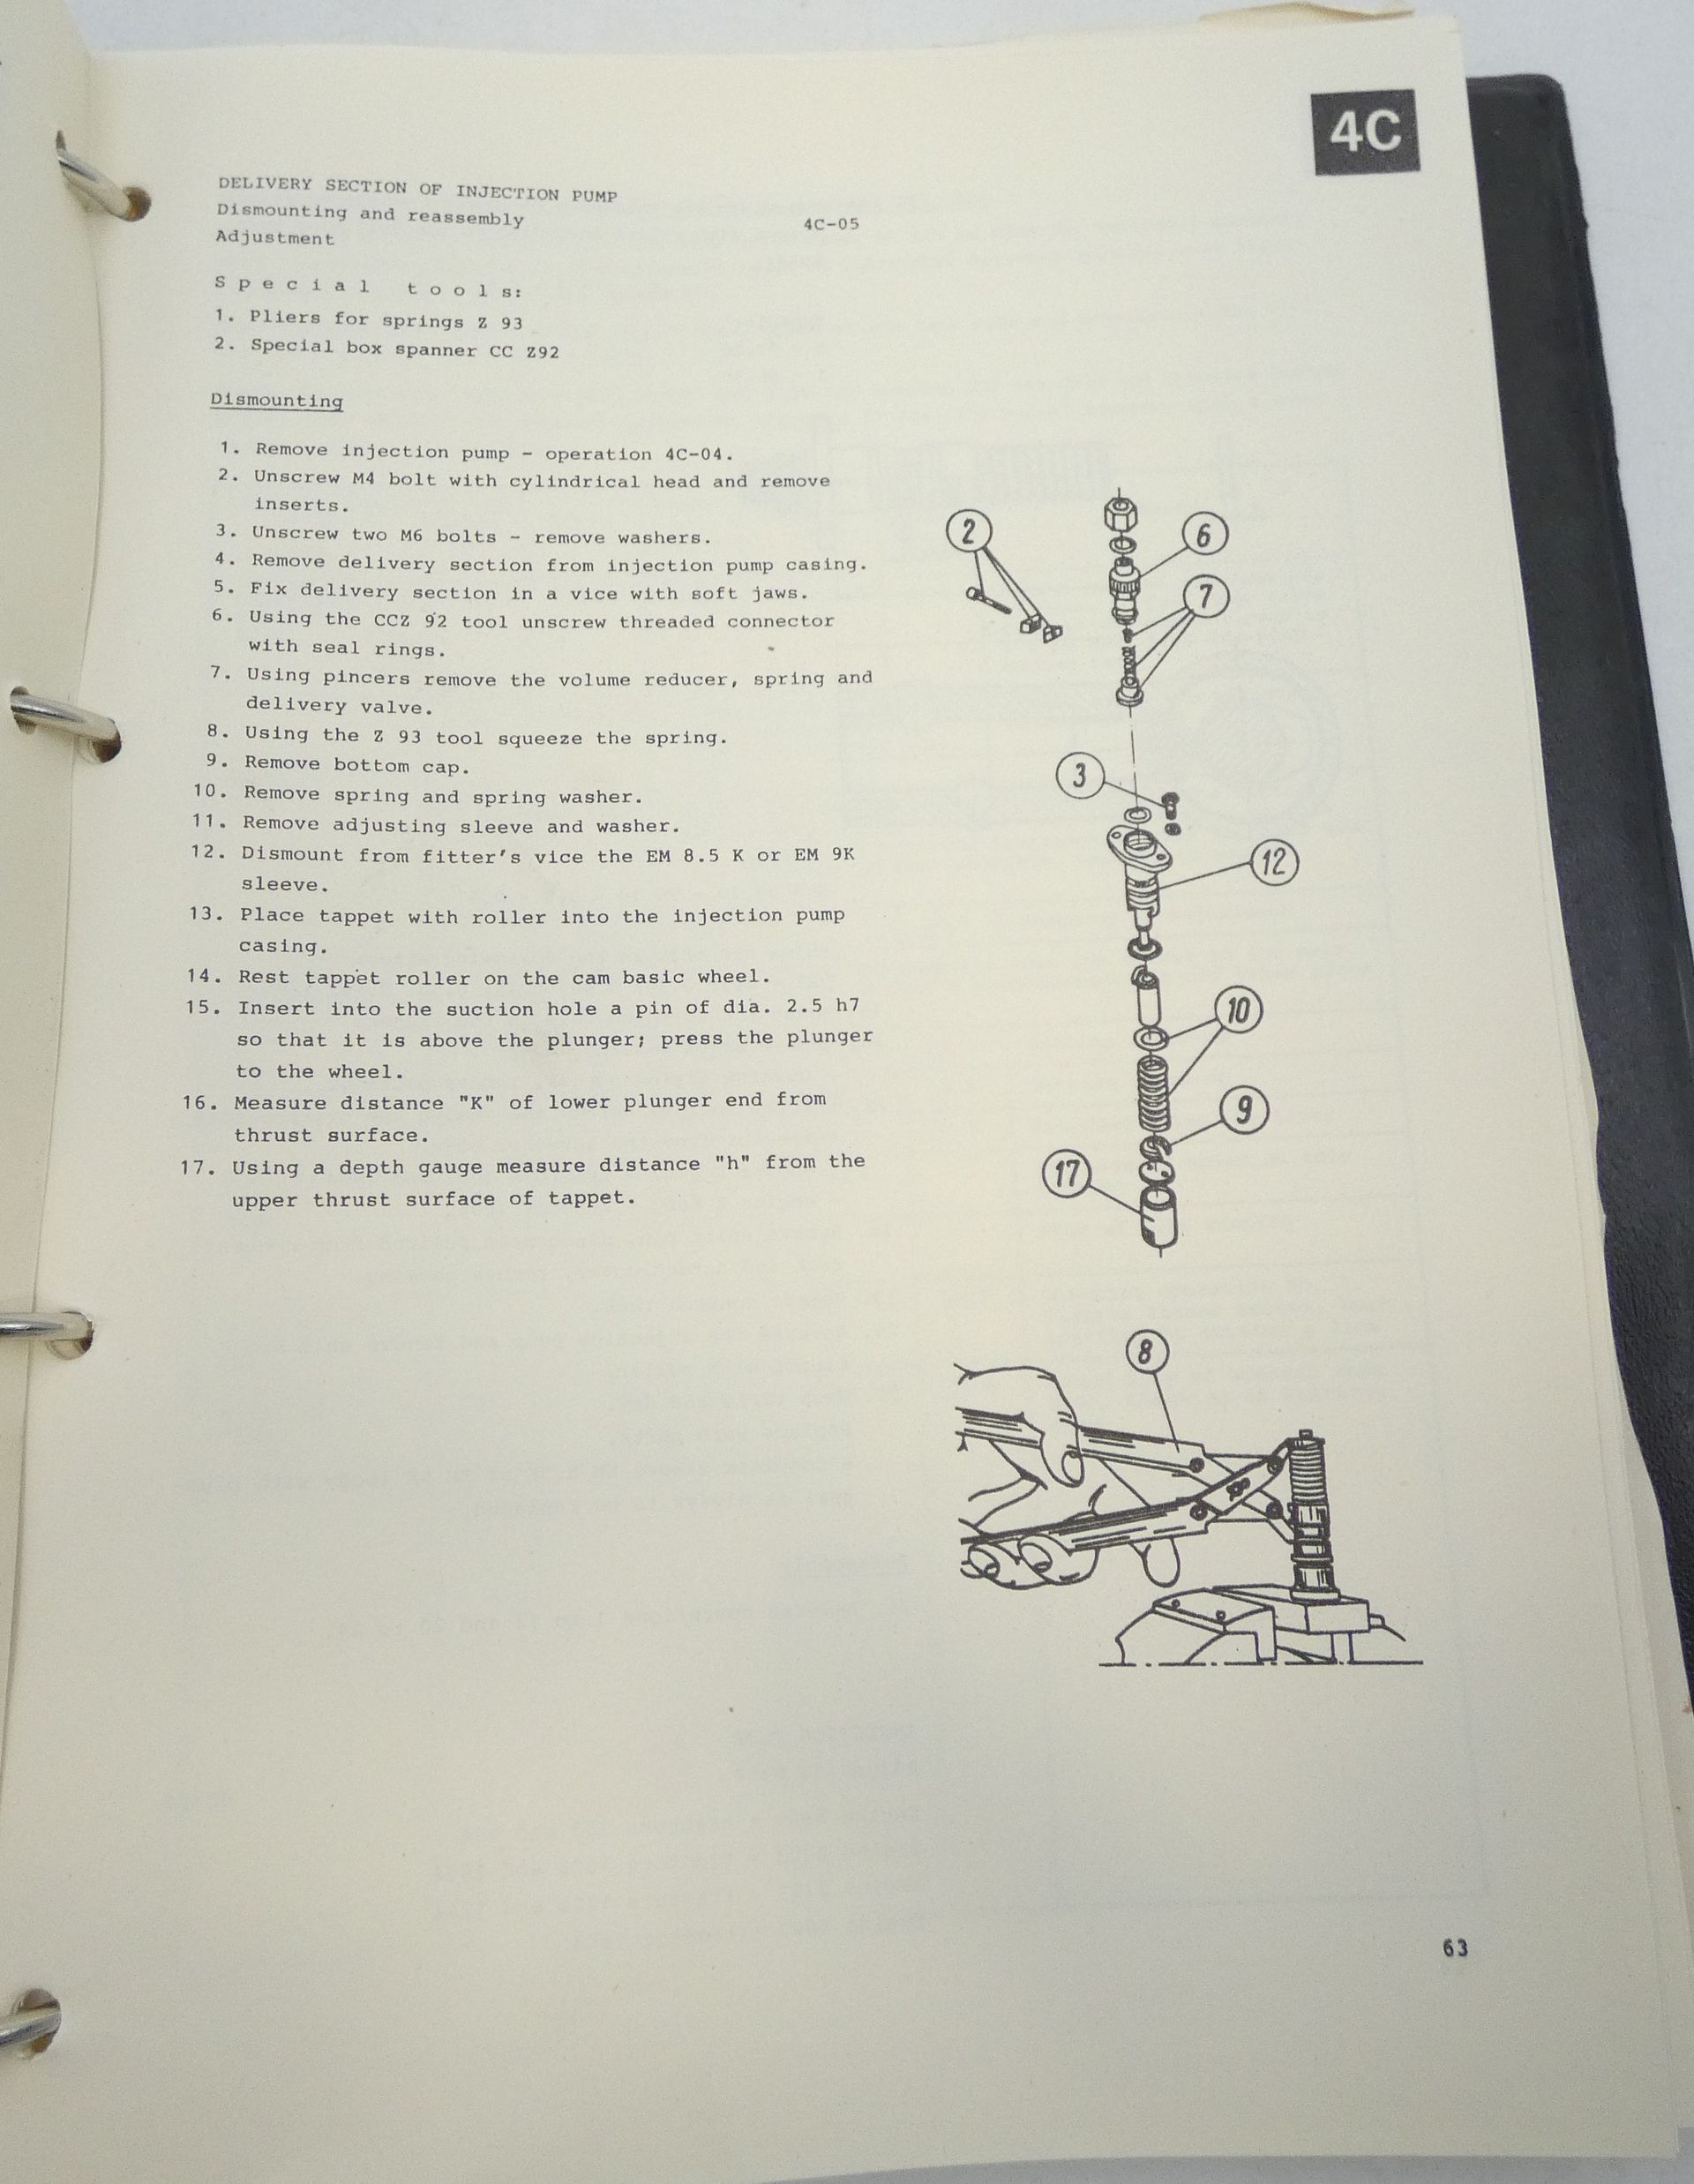 4C
DELIVERY SECTION OF INJECTION PUMP
Dismounting and reassembly
4C-05
Adjustment
Special tools:
1. Pliers for springs Z 93
2. Special box spanner CC Z92
Dismounting
1. Remove injection pump - operation 4C-04.
2. Unscrew M4 bolt with cylindrical head and remove
inserts.
3. Unscrew two M6 bolts - remove washers.
4. Remove delivery section from injection pump casing.
5. Fix delivery section in a vice with soft jaws.
6. Using the CCZ 92 tool unscrew threaded connector
with seal rings.
7. Using pincers remove the volume reducer, spring and
delivery valve.
8. Using the Z 93 tool squeeze the spring.
9. Remove bottom cap.
10. Remove spring and spring washer.
11. Remove adjusting sleeve and washer.
12. Dismount from fitter's vice the EM 8.5 K or EM 9K
sleeve.
13. Place tappet with roller into the injection pump
casing.
14. Rest tappet roller on the cam basic wheel.
15. Insert into the suction hole a pin of dia. 2.5 h7
so that it is above the plunger; press the plunger
to the wheel.
16. Measure distance "K" of lower plunger end from
thrust surface.
17. Using a depth gauge measure distance "h" from the
upper thrust surface of tappet.
2
6
7
3
12
10
9
17
8
63